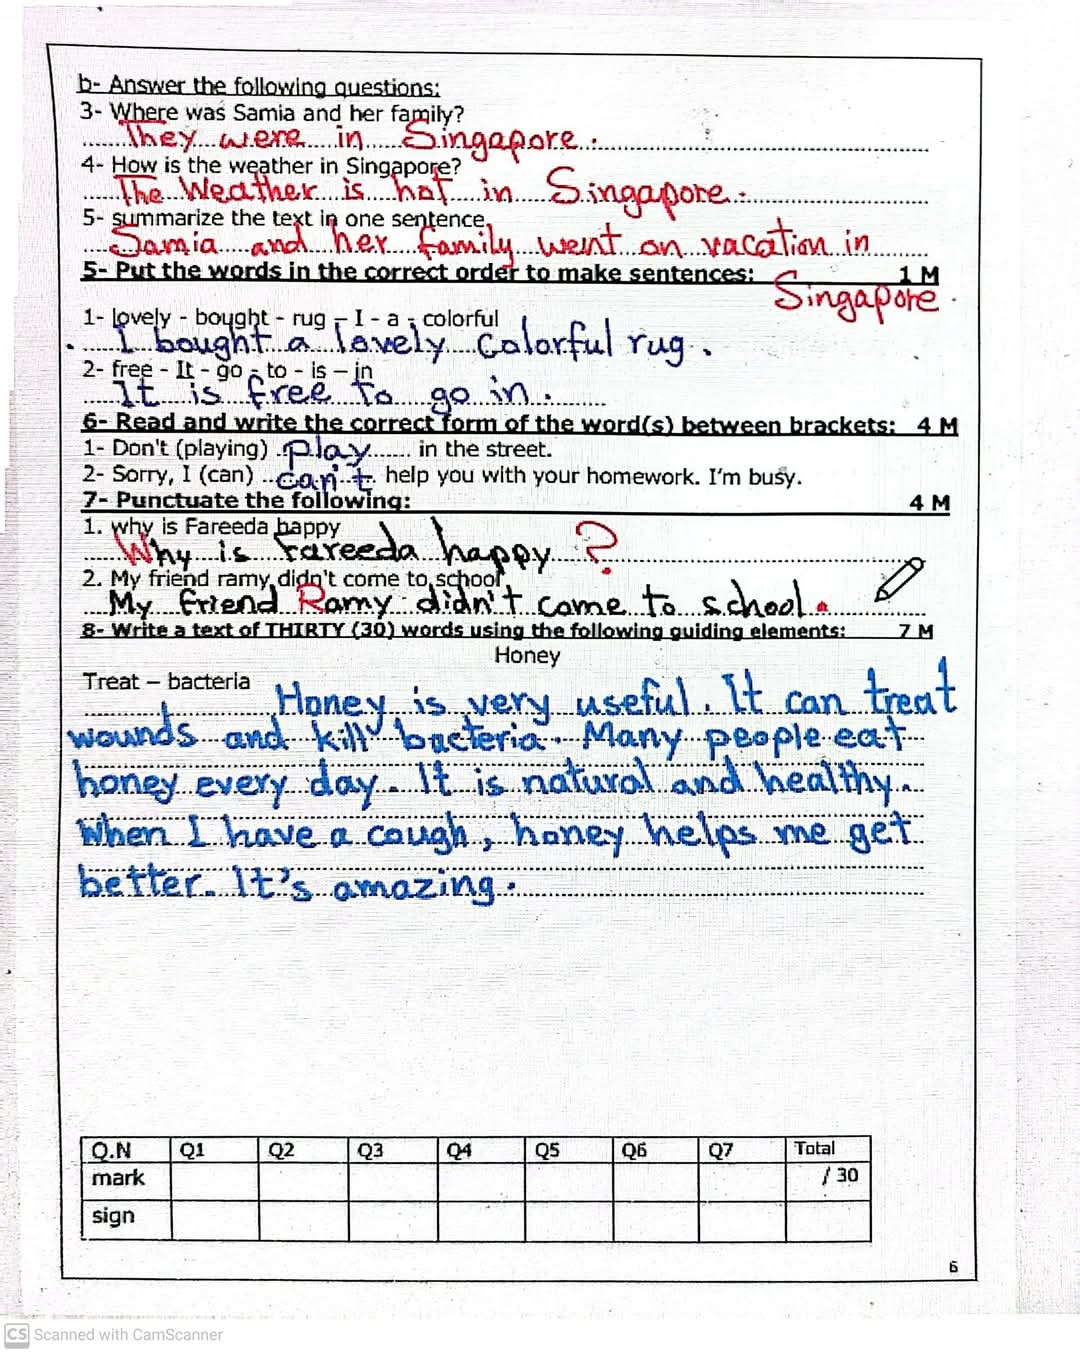 b- Answer the following questions:
3- Where was Samia and her family?
They were in Singapore.
4- How is the weather in Singapore?
The Weather is hot in Singapore.
5- summarize the text in one sentence.
Samia and her family went on vacation in
Singapore.
5- Put the words in the correct order to make sentences: 1 M
1- lovely - bought - rug – I - a - colorful
I bought a lovely colorful rug.
2- free - It - go - to - is – in
It is free to go in.
6- Read and write the correct form of the word(s) between brackets: 4 M
1- Don't (playing) play in the street.
2- Sorry, I (can) can't help you with your homework. I'm busy.
7- Punctuate the following: 4 M
1. why is Fareeda happy
Why is Fareeda happy ?
2. My friend ramy didn't come to school
My friend Ramy didn't come to school.
8- Write a text of THIRTY (30) words using the following guiding elements: 7 M
Honey
Treat – bacteria
Honey is very useful. It can treat
wounds and kill bacteria. Many people eat
honey every day. It is natural and healthy.
When I have a cough, honey helps me get
better. It's amazing.
Q.N Q1 Q2 Q3 Q4 Q5 Q6 Q7 Total
mark / 30
sign
6
CS Scanned with CamScanner